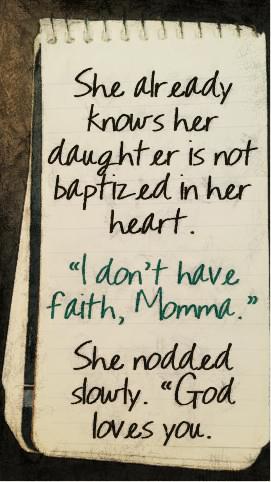 She already
knows her
daughter is not
baptized in her
heart.
"I don't have
faith, Momma."
She nodded
slowly. "God
loves you.